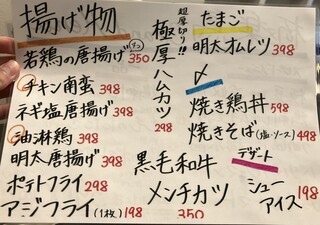 揚げ物
若鶏の唐揚げ(4コ)350
チキン南蛮 398
ネギ塩唐揚げ398
油淋鶏 398
明太唐揚げ398
ポテトフライ298
アジフライ(1枚)198
超厚切り!!
極厚ハムカツ
298
黒毛和牛
メンチカツ
350
たまご
明太オムレツ398
〆
焼き鶏丼 598
焼きそば(塩・ソース)498
デザート
シュー
アイス198